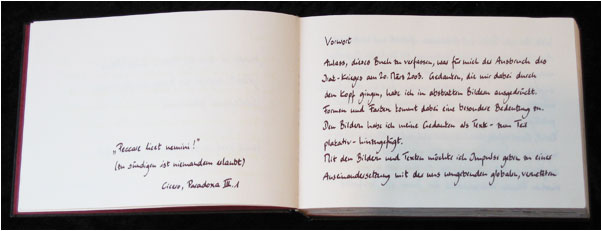 „Peccare licet nemini!"
(zu sündigen ist niemandem erlaubt)
Cicero, Paradoxa III.1
Vorwort
Anlass, dieses Buch zu verfassen, war für mich der Ausbruch des
Irak-Krieges am 20. März 2003. Gedanken, die mir dabei durch
den Kopf gingen, habe ich in abstrakten Bildern ausgedrückt.
Formen und Farben kommt dabei eine besondere Bedeutung zu.
Den Bildern habe ich meine Gedanken als Text - zum Teil
plakativ - hinzugefügt.
Mit den Bildern und Texten möchte ich Impulse geben zu einer
Auseinandersetzung mit der uns umgebenden globalen, vernetzten